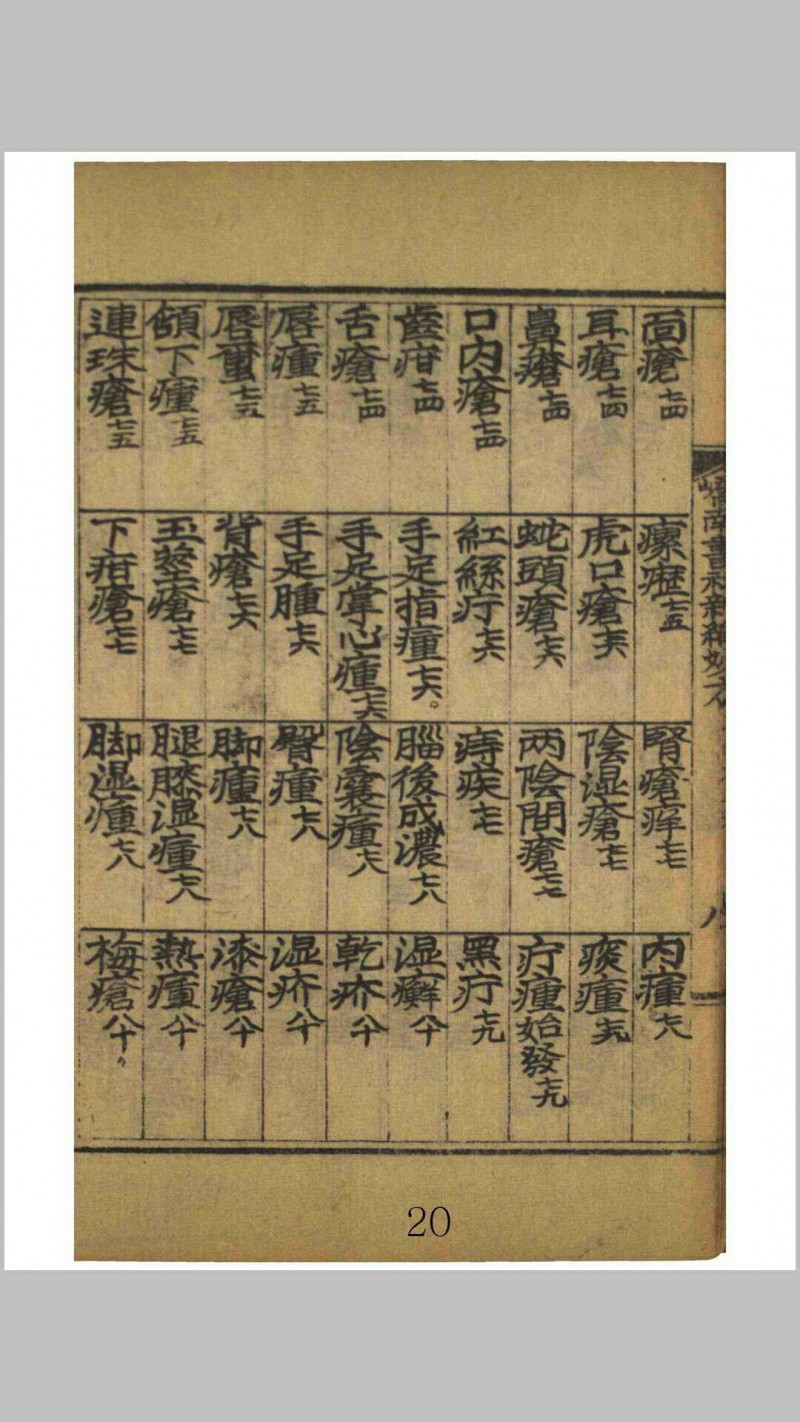 面瘡七四
耳瘡七四
鼻瘡七四
口内瘡七四
齒疳七四
舌瘡七四
唇瘇七五
唇重七五
頷下瘇七五
連珠瘡七五
瘰癧七五
虎口瘡七六
蛇頭瘡七六
紅絲疔七六
手足指瘇七六
手足掌心瘇七六
手足腫七六
背瘡七六
玉莖瘡七七
下疳瘡七七
腎瘡痒七七
陰湿瘡七七
两陰間瘡七七
痔疾七七
腦後成濃七八
陰囊瘇七八
臀瘇七八
脚瘇七八
腿膝湿瘇七八
脚湿瘇七八
内瘇七八
痰瘇七九
疔瘇始發七九
黑疔七九
湿癬八十
乾疥八十
湿疥八十
漆瘡八十
熱瘇八十
梅瘡八十
20